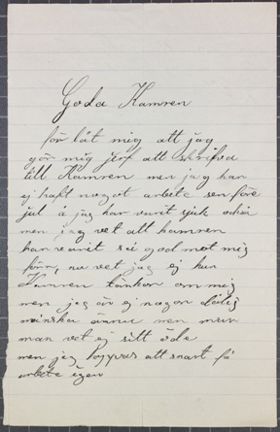 Goda Kamren
för låt mig att jag
gör mig jerf att skrifva
till Kamren men jag har
ej haft något arbete sen före
jul å jag har varit sjuk också
men jag vet att kamren
har varit så god mot mig
förr, nu vet jag ej hur
Kamren tänker om mig
men jag är ej någon dålig
mänska ännu men mur
man vet ej sitt öde
men jag hoppas att snart få
arbete igen